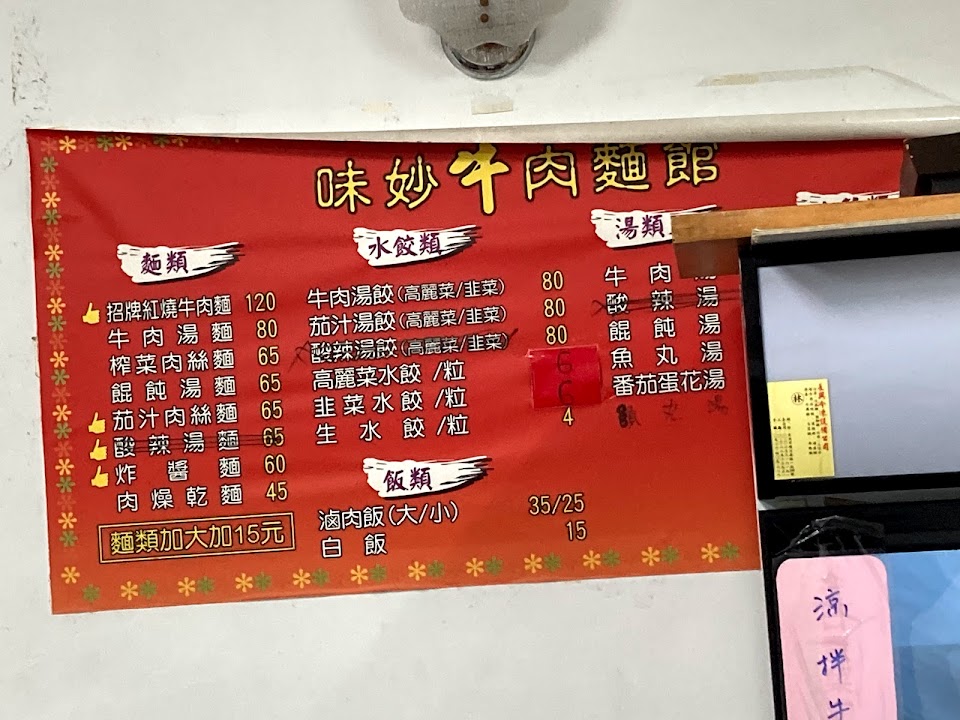 味妙牛肉麵館
麵類
招牌紅燒牛肉麵 120
牛肉湯麵 80
榨菜肉絲麵 65
餛飩湯麵 65
茄汁肉絲麵 65
酸辣湯麵 65
炸醬麵 60
肉燥乾麵 45
麵類加大加15元
水餃類
牛肉湯餃(高麗菜/韭菜) 80
茄汁湯餃(高麗菜/韭菜) 80
酸辣湯餃(高麗菜/韭菜) 80
高麗菜水餃/粒 6
韭菜水餃/粒 6
生水餃/粒 4
飯類
滷肉飯(大/小) 35/25
白飯 15
湯類
牛肉湯
酸辣湯
餛飩湯
魚丸湯
番茄蛋花湯
林
涼拌牛